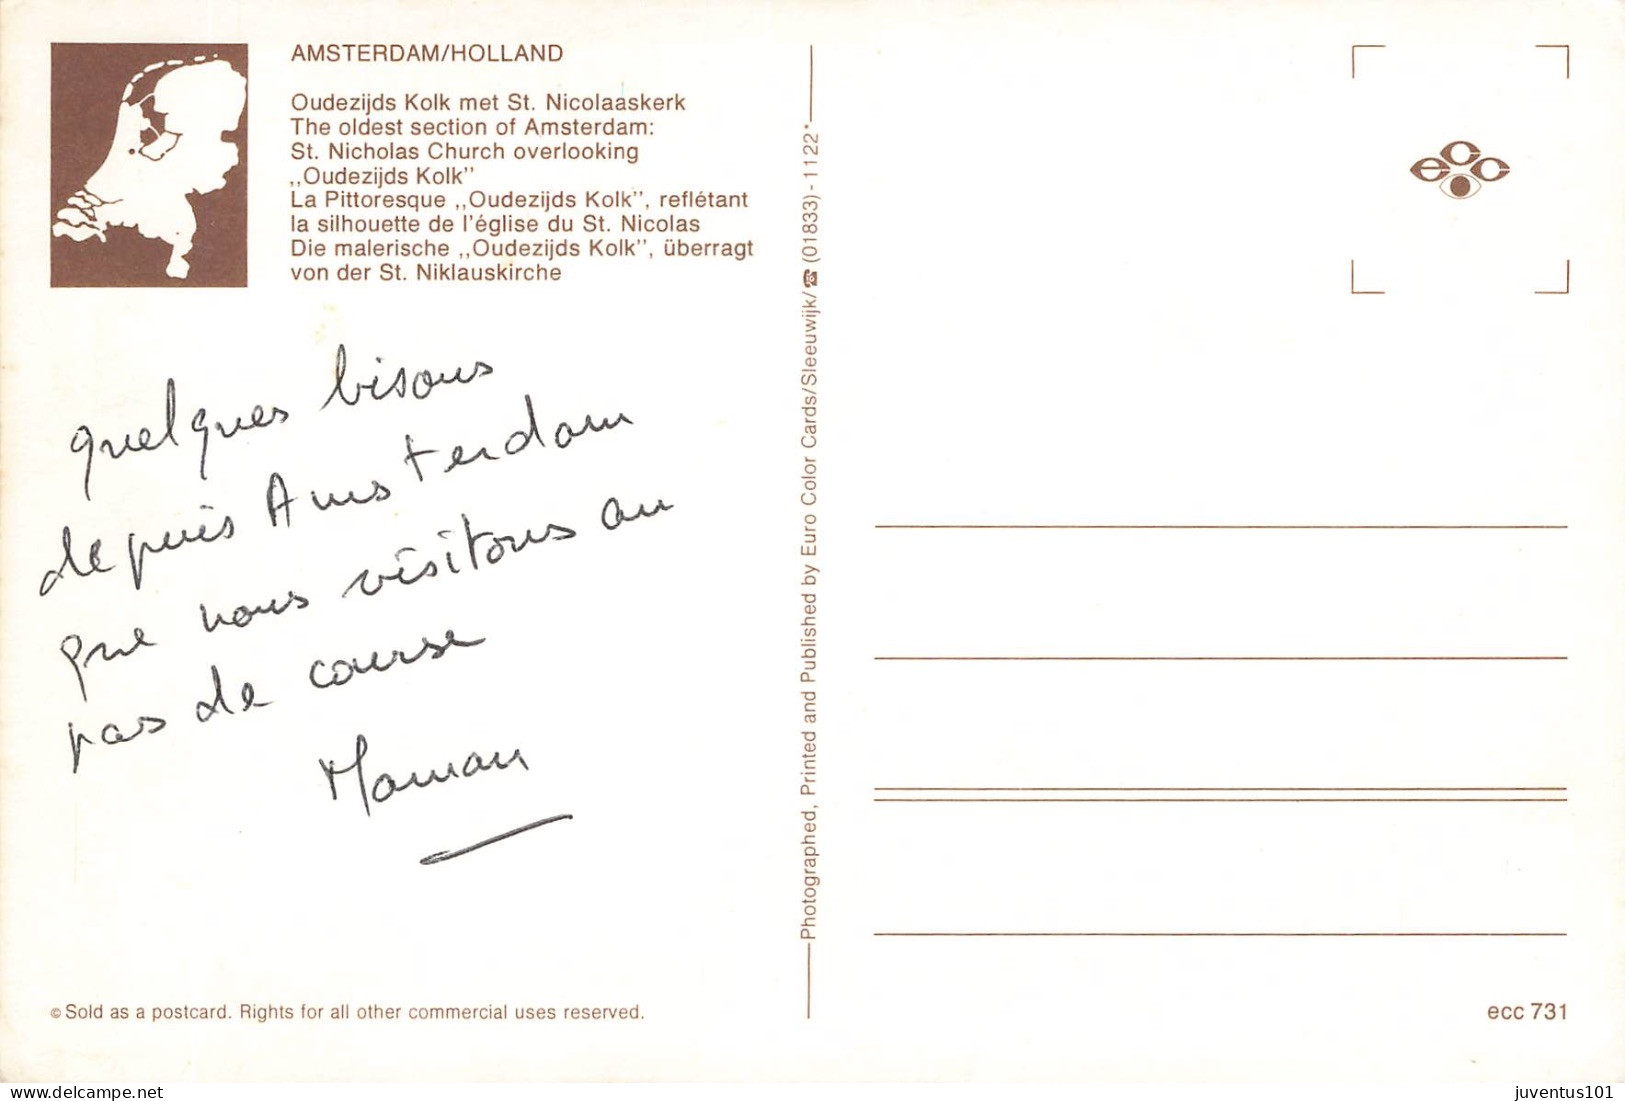 AMSTERDAM/HOLLAND
Oudezijds Kolk met St. Nicolaaskerk
The oldest section of Amsterdam:
St. Nicholas Church overlooking
,,Oudezijds Kolk"
La Pittoresque ,,Oudezijds Kolk", reflétant
la silhouette de l'église du St. Nicolas
Die malerische ,,Oudezijds Kolk", überragt
von der St. Niklauskirche
quelques bisous
depuis Amsterdam
que nous visitons au
pas de course
Maman
© Sold as a postcard. Rights for all other commercial uses reserved.
Photographed, Printed and Published by Euro Color Cards/Sleeuwijk/☎(01833)-1122*
ecc
ecc 731
juventus101